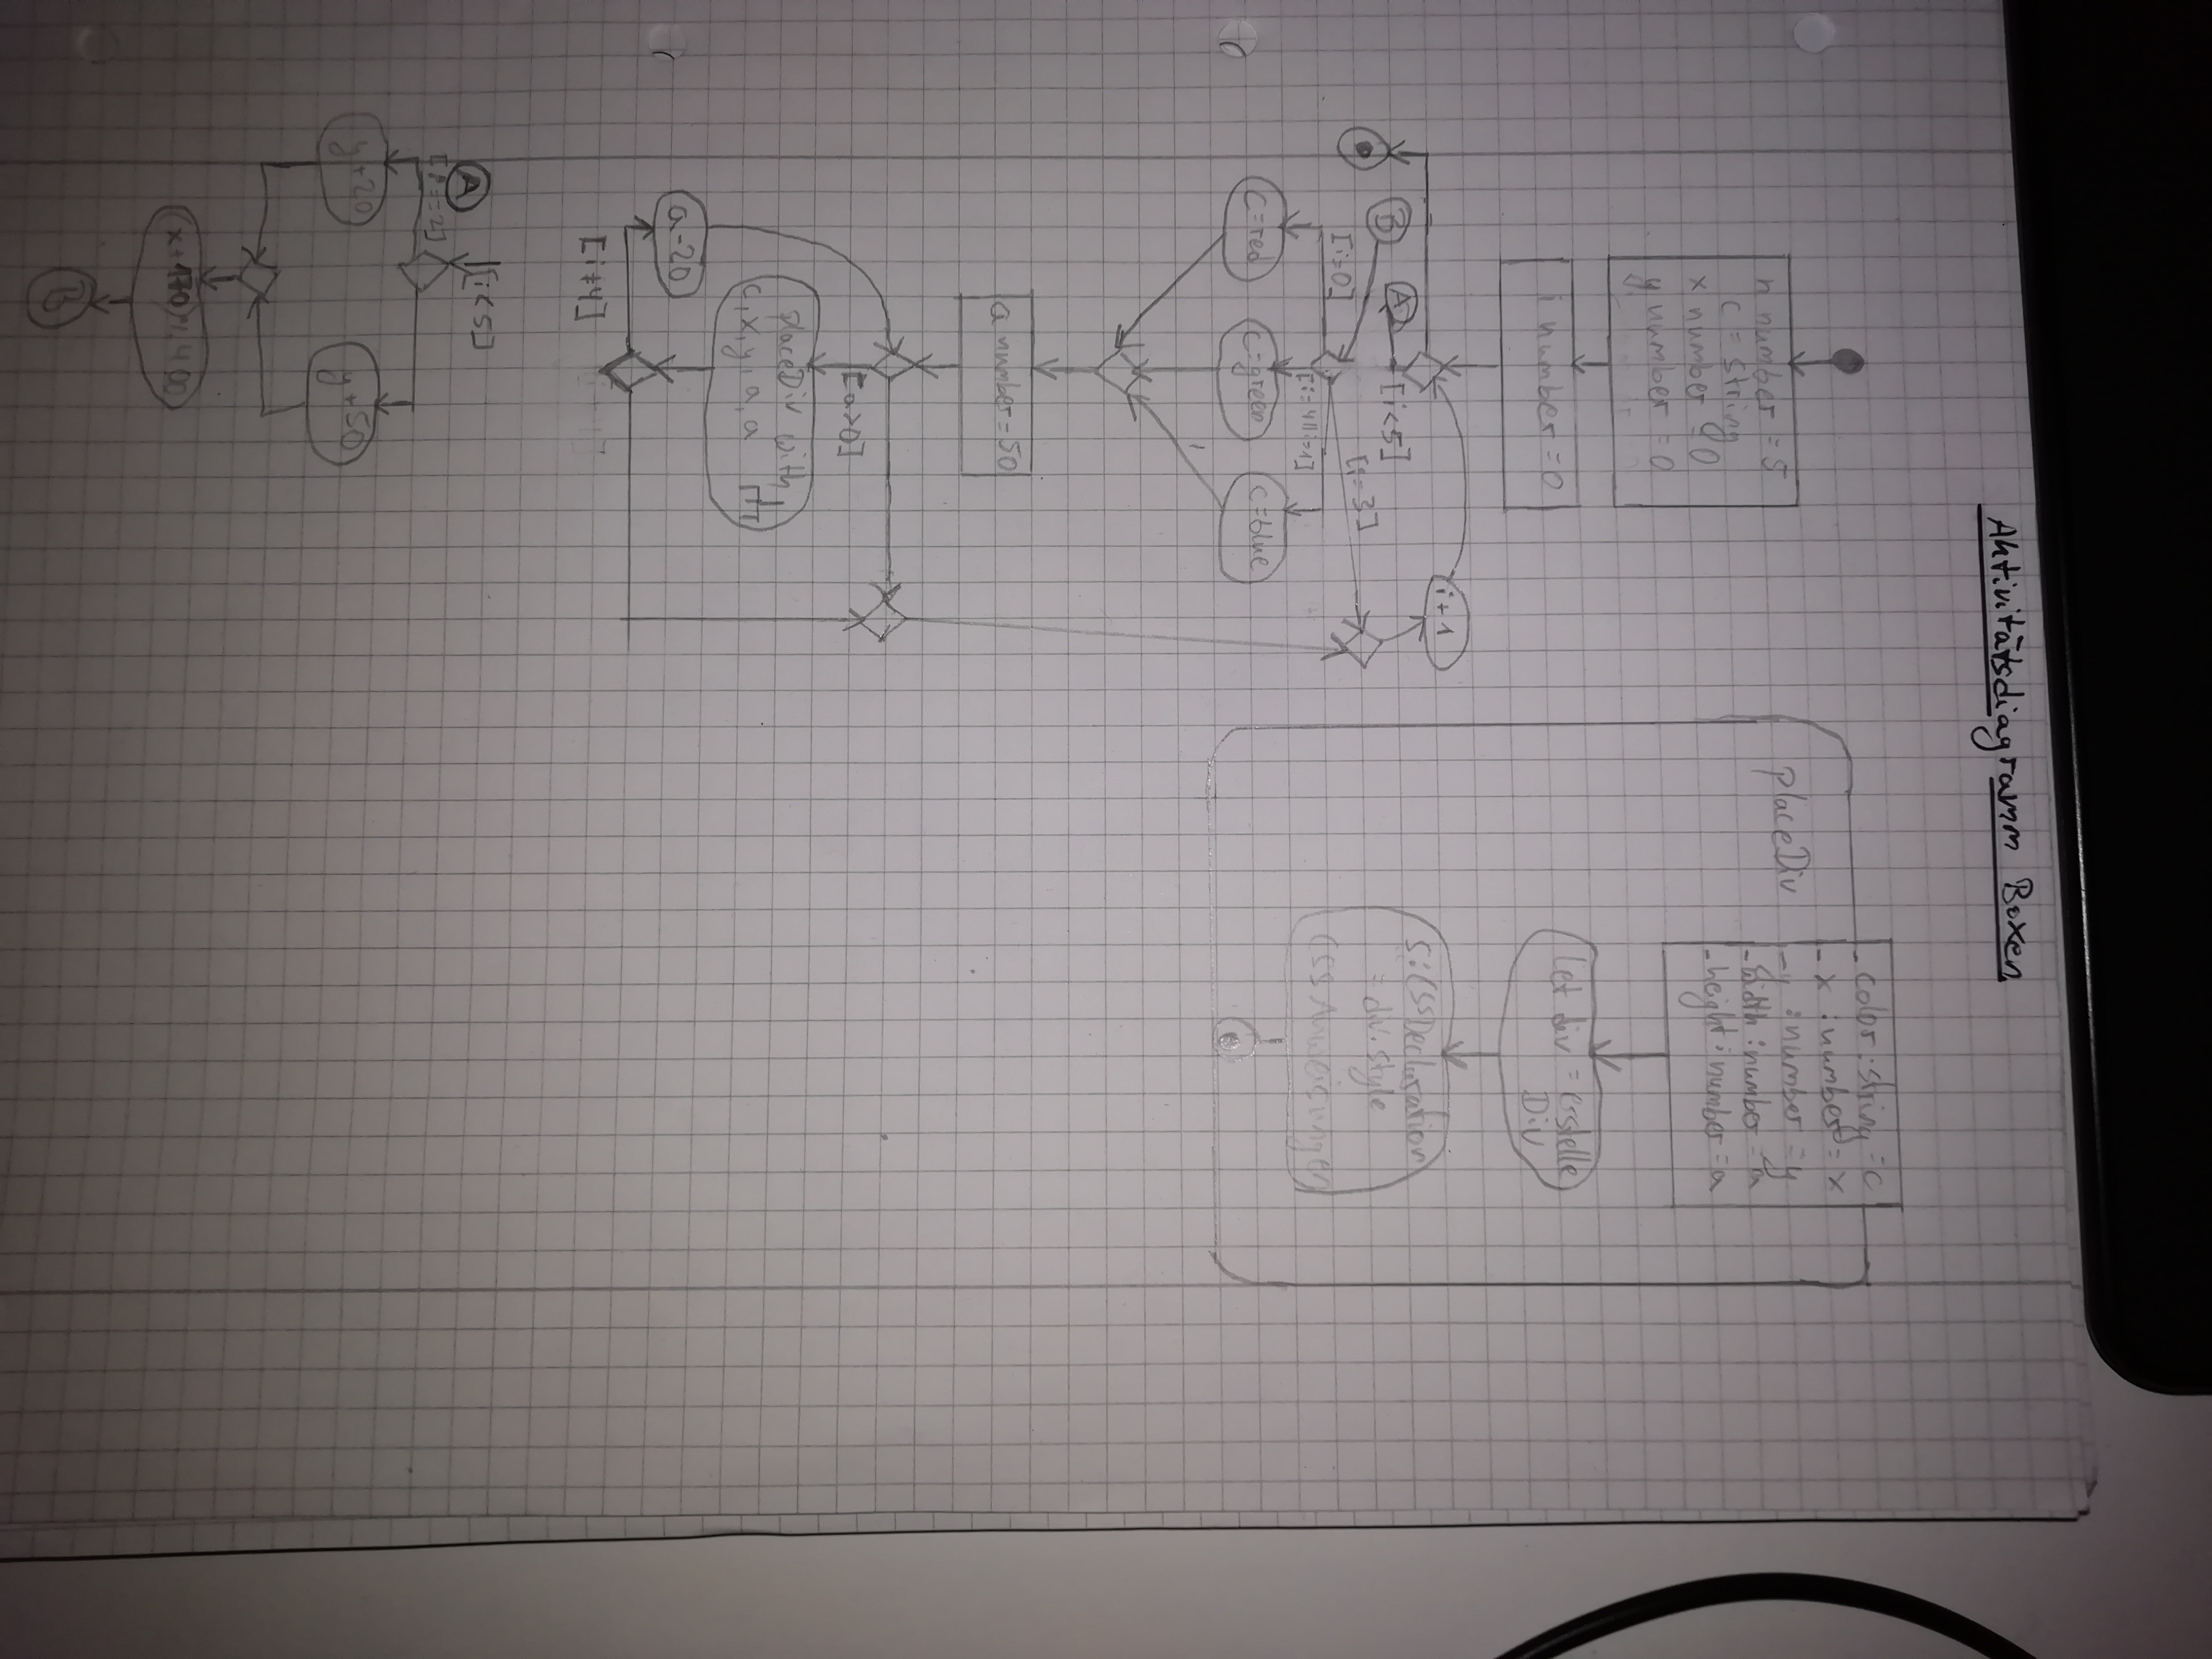 Aktivitätsdiagramm Boxen
n number = 5
c = string
x number = 0
y number = 0
i number = 0
i+1
A
B
[i<5]
[i=3]
[i=0]
[i=4||i=1]
c=red
c=green
c=blue
a number = 50
[a>0]
placeDiv with
c, x, y, a, a
a-20
[i≠4]
A
[i<5]
[i==2]
y+20
y+50
(x+170)%400
B
placeDiv
- color : string = c
- x : number = x
- y : number = y
- width : number = a
- height : number = a
let div = erstelle
Div
s:CSSDeclaration
= div.style
CSS Anweisungen